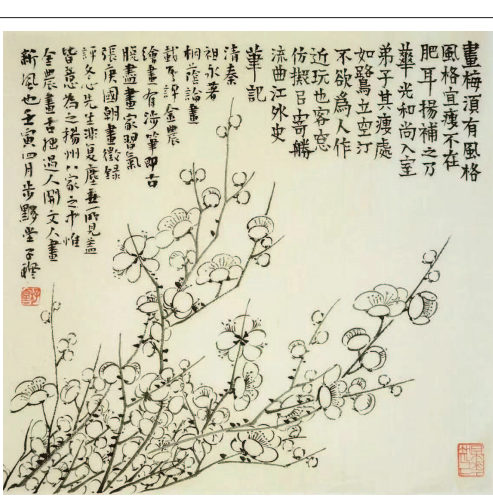 畫梅須有風格
風格宜瘦不在
肥耳揚補之乃
華光和尚入室
弟子其瘦處
如鷺立空汀
不欲為人作
近玩也客窓
仿擬呂寄觴
流曲江外史
筆記
清秦
祖永著
桐蔭論畫
載有評金農
繪畫有倚筆即古
脫盡畫家習氣
張庚國朝畫徵錄
評冬心先生非復塵世所見蓋
皆意為之揚州八家之中惟
金農畫古拙過人開文人畫
新風也壬寅四月步黟堂